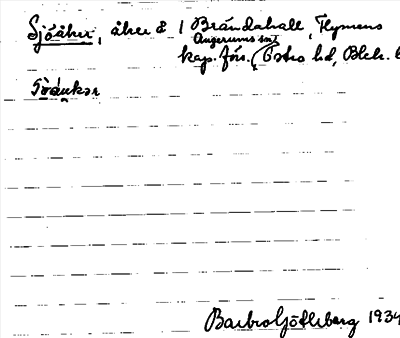 Sjöåker, åker å 1 Brändahall, Flymens
Augerums sn
kap. förs. (Östra hd, Blek. l
Barbro Götlberg 1934